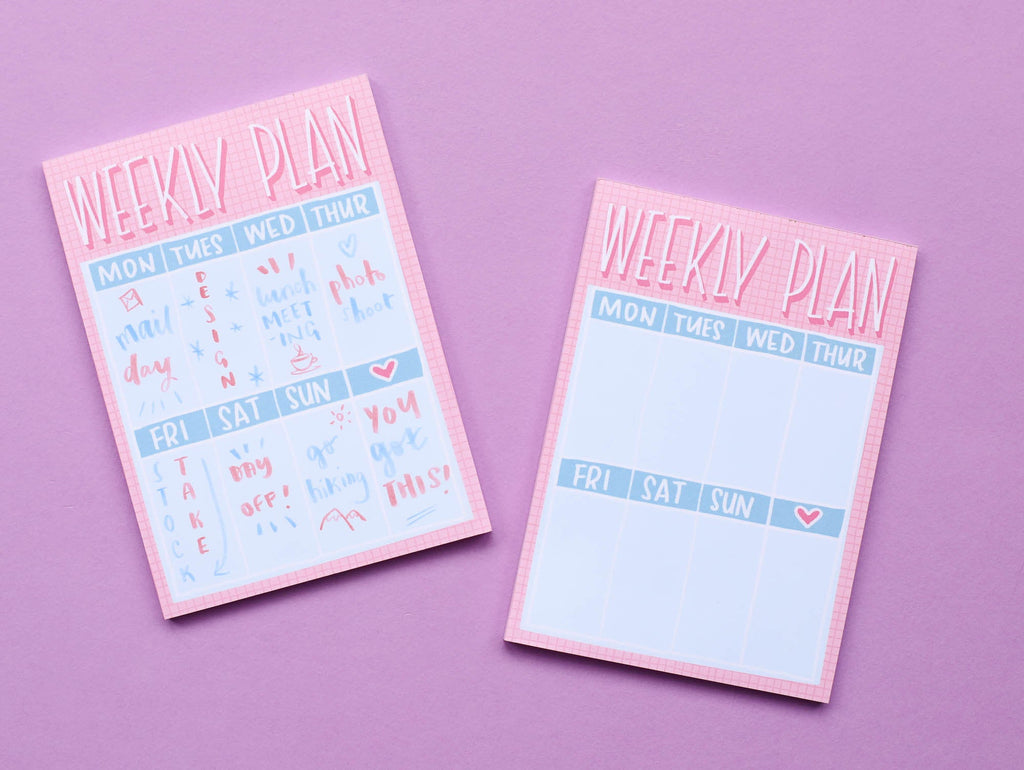 WEEKLY PLAN
MON TUES WED THUR
mail
day
DESIGN
lunch
MEET
-ING
photo
shoot
FRI SAT SUN
STOCK
TAKE
DAY
OFF!
go
hiking
YOU
got
THIS!
WEEKLY PLAN
MON TUES WED THUR
FRI SAT SUN